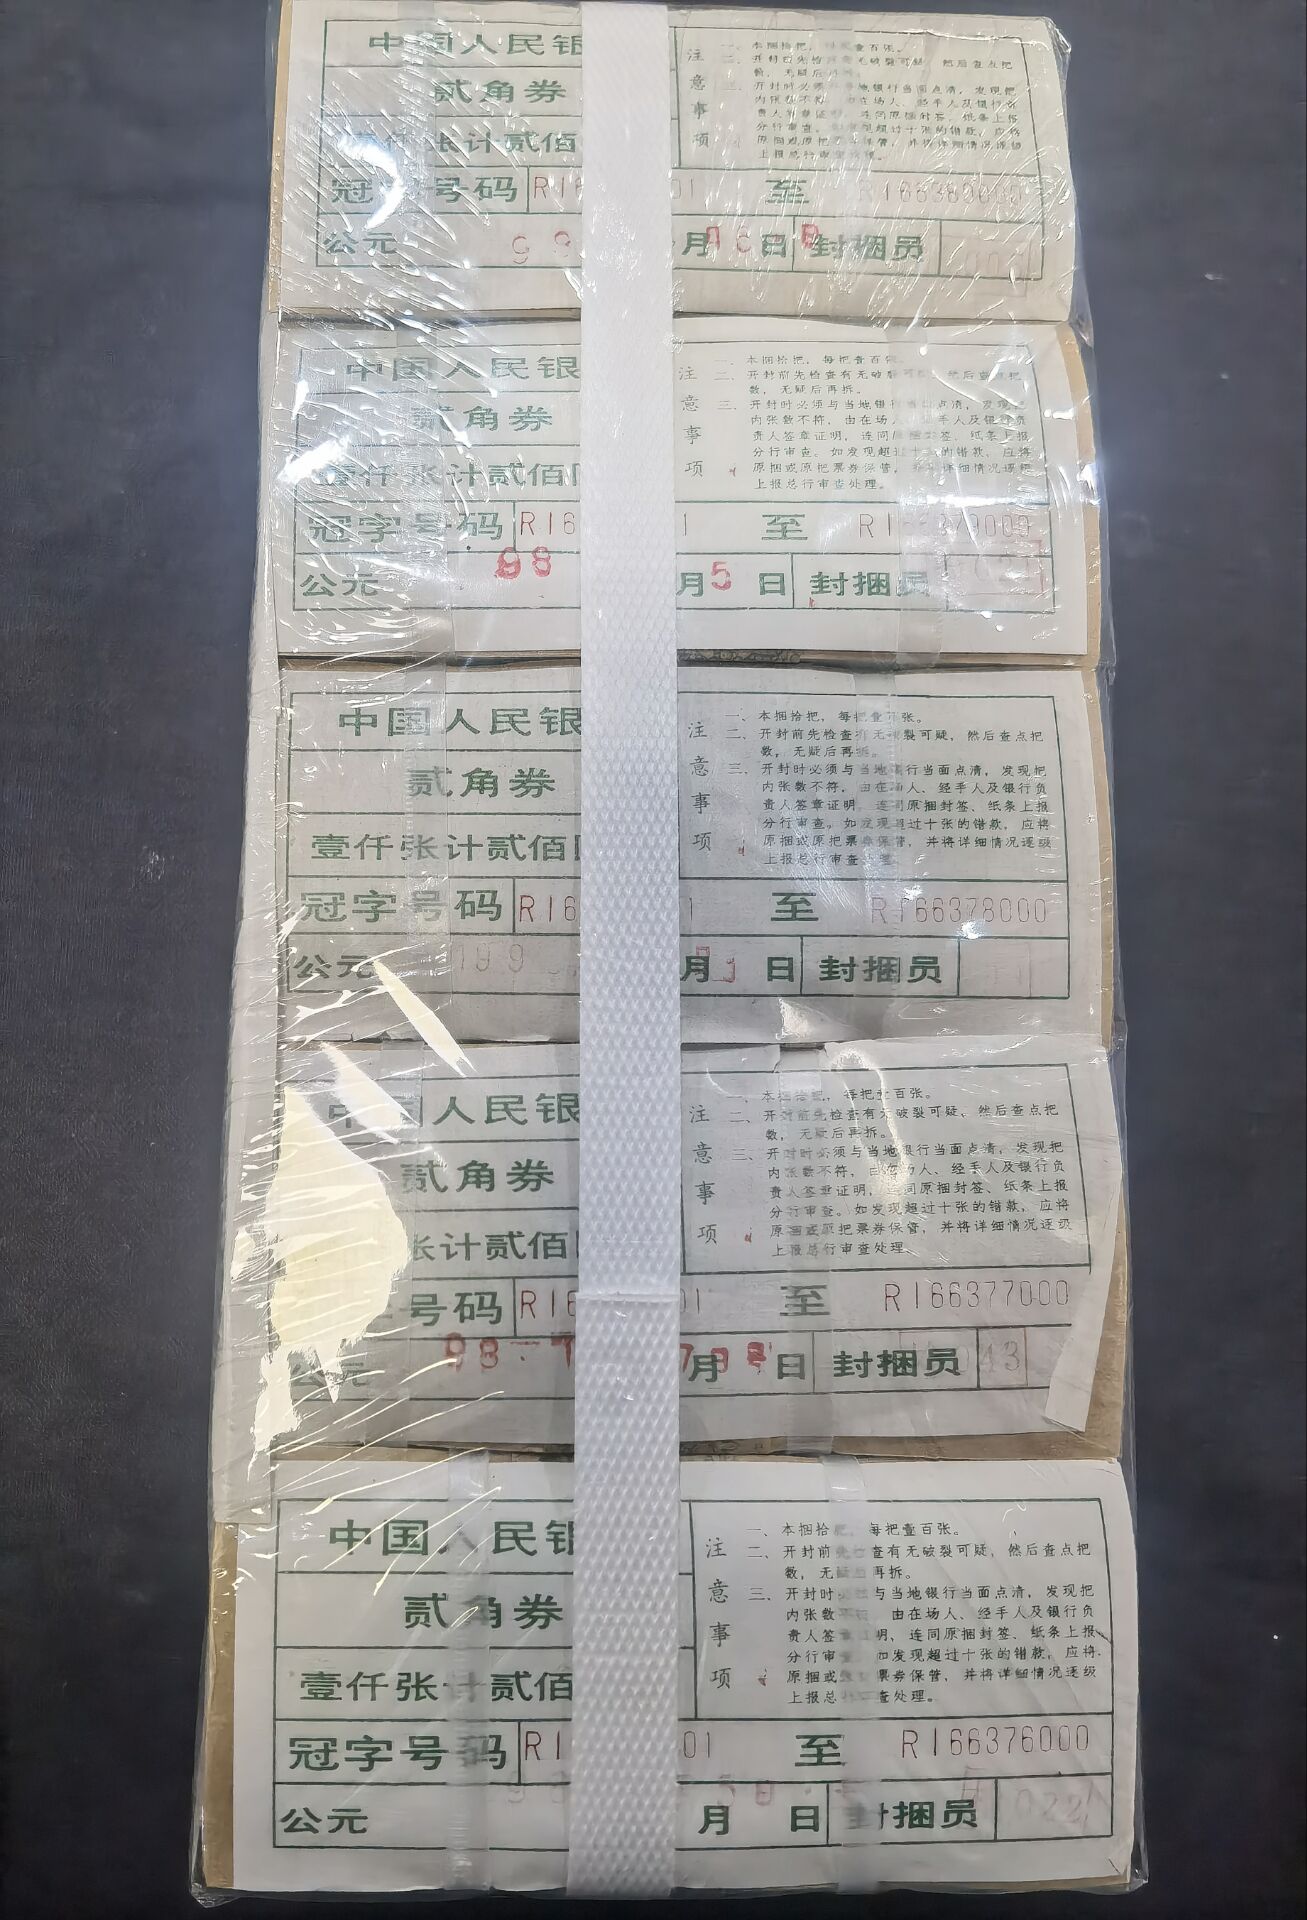 中国人民银
贰角券
张计贰佰
冠 号码 R16 01 至 R166380000
公元 99 月 日 封捆员
注意事项
一、本捆拾把, 壹百张。
然后查点把
数,无疑后
三、开封时必须 地银行当面点清,发现把
内张数不 在场人、经手人及银行负
连同原捆封签、纸条上报
分行审查。 现超过十张的错款,应将
原捆或原把 保管,并将详细情况逐级
上报总行审查 理。
中国人民银
贰角券
壹仟张计贰佰
冠字号码 R16 1 至
公元 98 月 5 日 封捆员
注意事项
一、本捆拾把,每把壹百张。
二、开封前先检查有无破裂可疑,然后查点把
数,无疑后再拆。
三、开封时必须与当地银行当面点清,发现把
内张数不符,由在场人、经手人及银行负
责人签章证明,连同原捆封签、纸条上报
分行审查。如发现超过十张的错款,应将
原捆或原把票券保管,并将详细情况逐级
上报总行审查处理。
中国人民银
贰角券
壹仟张计贰佰
冠字号码 R16 1 至 R166378000
公元 199 月 日 封捆员
注意事项
一、本捆拾把,每把壹百张。
二、开封前先检查有无破裂可疑,然后查点把
数,无疑后再拆。
三、开封时必须与当地银行当面点清,发现把
内张数不符,由在场人、经手人及银行负
责人签章证明,连同原捆封签、纸条上报
分行审查。如发现超过十张的错款,应将
原捆或原把票券保管,并将详细情况逐级
上报总行审查
中国人民银
贰角券
张计贰佰
号码 R16 01 至 R166377000
公元 98 月 日 封捆员 43
注意事项
一、本捆拾把,每把壹百张。
二、开封前先检查有无破裂可疑,然后查点把
数,无疑后再拆。
三、开封时必须与当地银行当面点清,发现把
内张数不符,由在场人、经手人及银行负
责人签章证明,连同原捆封签、纸条上报
分行审查。如发现超过十张的错款,应将
原捆或原把票券保管,并将详细情况逐级
上报总行审查处理。
中国人民银
贰角券
壹仟张计贰佰
冠字号码 R1 01 至 R166376000
公元 月 日 封捆员 022
注意事项
一、本捆拾把,每把壹百张。
二、开封前先检查有无破裂可疑,然后查点把
数,无疑后再拆。
三、开封时必须与当地银行当面点清,发现把
内张数不符 由在场人、经手人及银行负
责人签章证明,连同原捆封签、纸条上报
分行审查 如发现超过十张的错款,应将
原捆或原把票券保管,并将详细情况逐级
上报总行审查处理。